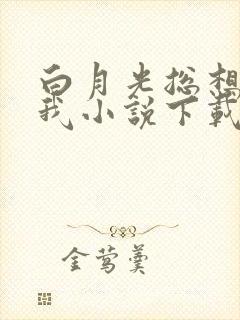 白月光总想
我小说下载
金莺羹